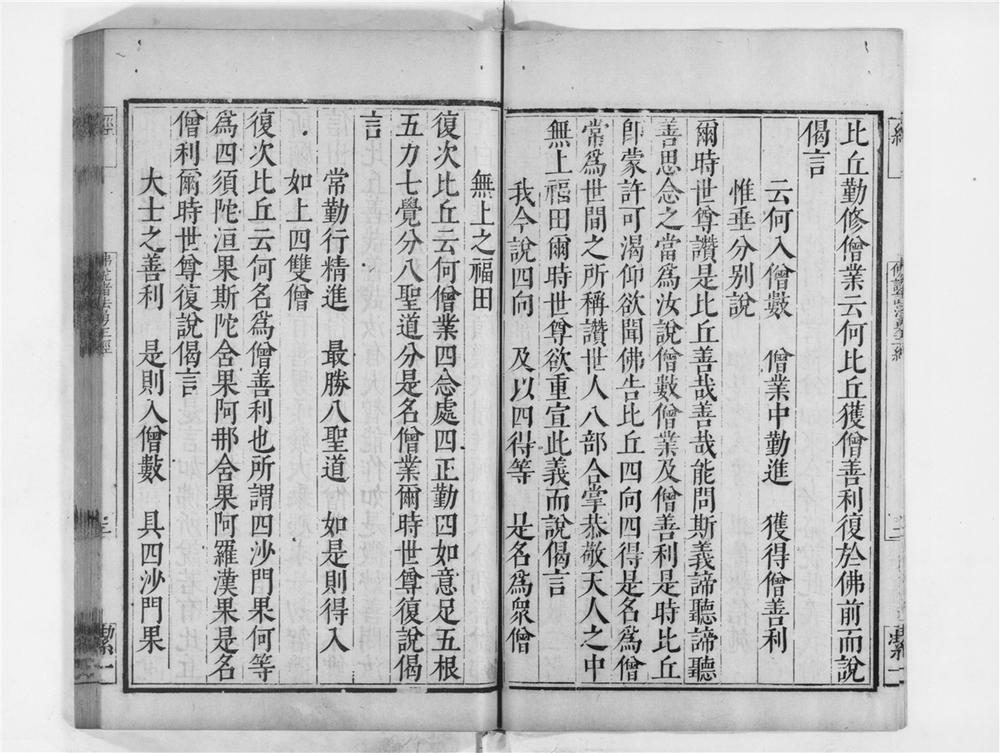 比丘勤修僧業云何比丘獲僧善利復於佛前而說
偈言
云何入僧數　僧業中勤進　獲得僧善利
惟垂分別說
爾時世尊讚是比丘善哉善哉能問斯義諦聽諦聽
善思念之當爲汝說僧數僧業及僧善利是時比丘
即蒙許可渴仰欲聞佛告比丘四向四得是名爲僧
常爲世間之所稱讚世人八部合掌恭敬天人之中
無上福田爾時世尊欲重宣此義而說偈言
我今說四向　及以四得等　是名爲衆僧
無上之福田
復次比丘云何僧業四念處四正勤四如意足五根
五力七覺分八聖道分是名僧業爾時世尊復說偈
言
常勤行精進　最勝八聖道　如是則得入
如上四雙僧
復次比丘云何名爲僧善利也所謂四沙門果何等
爲四須陀洹果斯陀含果阿那含果阿羅漢果是名
僧利爾時世尊復說偈言
大士之善利　是則入僧數　具四沙門果